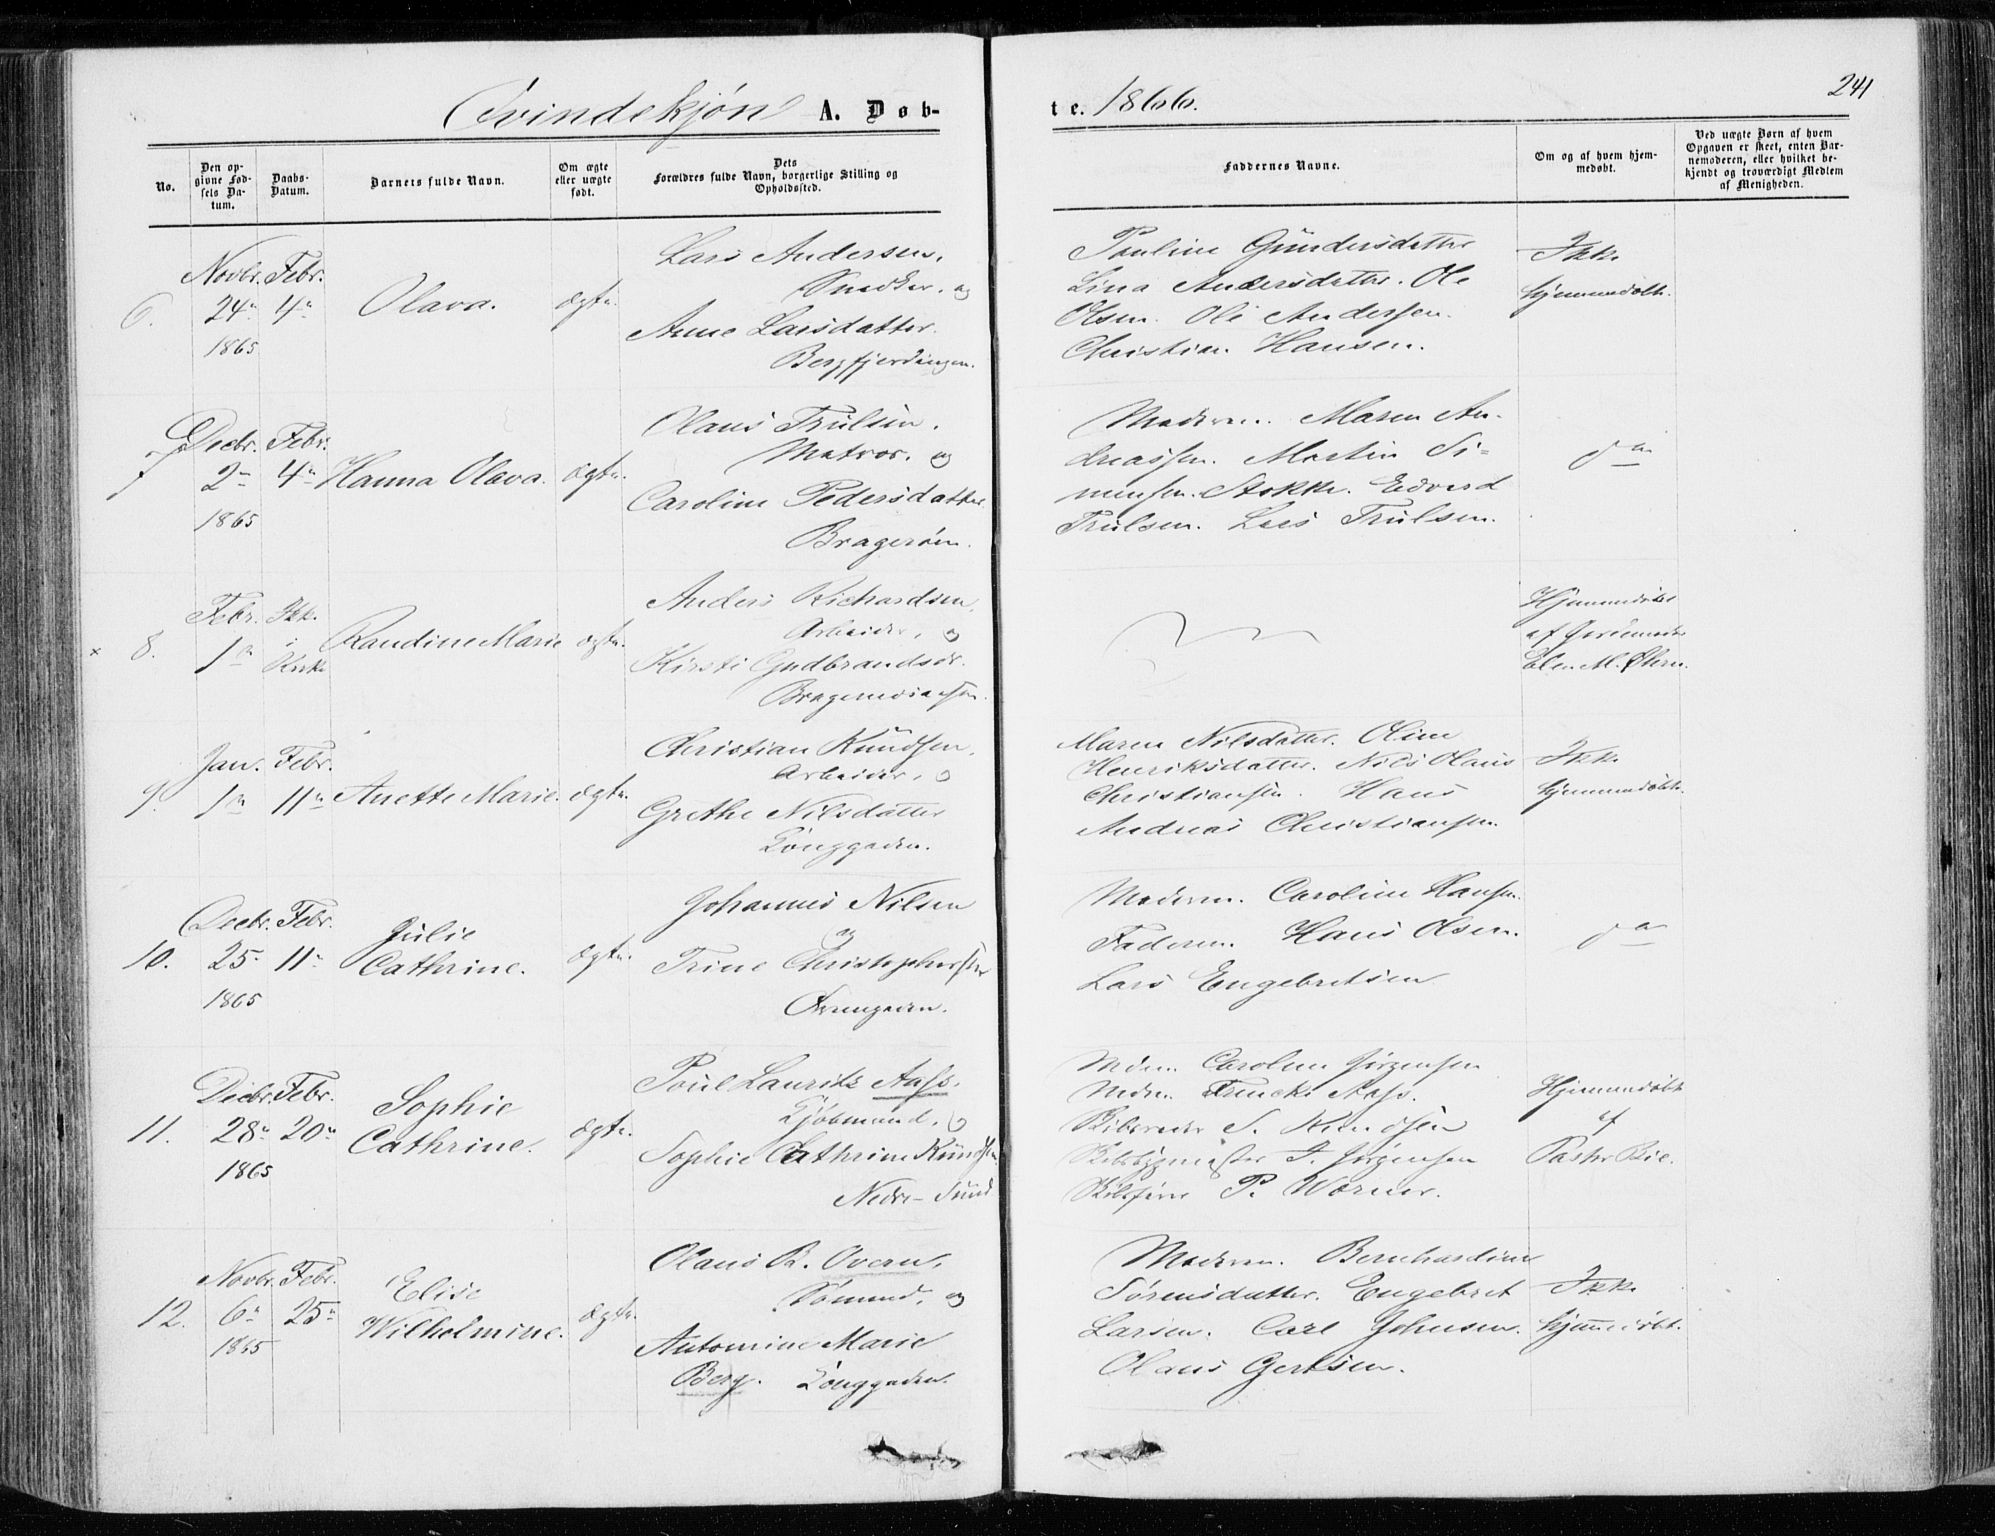 Qvindekjøn A. Døb-
te. 1866.
241
No.
Den op-
givne Fød-
sels Da-
tum.
Daabs-
Datum.
Barnets fulde Navn.
Om ægte
eller uægte
født.
Dets
Forældres fulde Navn, borgerlige Stilling og
Opholdssted.
Faddernes Navne.
Om og af hvem hjem-
medøbt.
Ved uægte Børn af hvem
Opgaven er skeet, enten Bar-
nemoderen, eller hvilket be-
kjendt og troværdigt Medlem
af Menigheden.
6.
Novbr.
24n
1865
Febr.
4n
Olava.
ægte.
Lars Andersen,
Snedker, og
Anne Larsdatter.
Bergfjerdingen.
Pauline Gundersdatter
Lina Andersdatter. Ole
Olsen. Ole Anderssen.
Christian Hansen.
Ikke
hjemmedøbt.
7
Decbr.
2n
1865
Febr.
4n
Hanna Olava.
ægte.
Olaus Trulsen,
Matros, og
Caroline Pedersdatter
Bragerøen.
Moderen. Maren An-
dreassen. Martin Si-
mensen. Stokke. Edvard
Trulsen. Lars Trulsen.
da
× 8.
Febr.
1n
Ikke
i
Kirke
Randine Marie
ægte.
Anders Richardsen,
Arbeider, og
Kirsti Gudbrandsdr.
Bragernesaasen.
Hjemmedøbt
af Jordemoder
9.
Jan.
1n
Febr.
11n
Anette Marie.
ægte.
Christian Knudsen,
Arbeider, og
Grethe Nilsdatter
Longgaden.
Maren Nilsdatter. Oline
Henriksdatter. Nils Olaus
Christiansen. Hans
Andreas Christiansen.
Ikke
hjemmedøbt.
10.
Decbr.
25n
1865
Febr.
11n
Julie
Cathrine.
ægte.
Johannes Nilsen
og
Trine Christophersdr
Moderen. Caroline Hansen.
Faderen. Hans Olsen.
Lars Engebretsen
da
11.
Decbr.
28n
1865
Febr.
20n
Sophie
Cathrine.
ægte.
Poul Lauritz Aass,
Kjøbmand, og
Sophie Cathrine Knudsen
Nedre-Sund
Mdm. Caroline Jørgensen
Mdm. Aass.
Skibsreder S. Knudsen
Skibsbygmester J. Jørgensen
P. Wærner.
Hjemmedøbt
af
Pastor Bie.
12.
Novbr.
6n
1865
Febr.
25n
Elise
Wilhelmine.
ægte.
Olaus B. Overn,
Sømand, og
Antomine Marie
Berg. Longgaden.
Moderen. Bernhardine
Sørensdatter. Engebret
Larsen. Carl Johnsen.
Olaus Gertsen.
Ikke
hjemmedøbt.